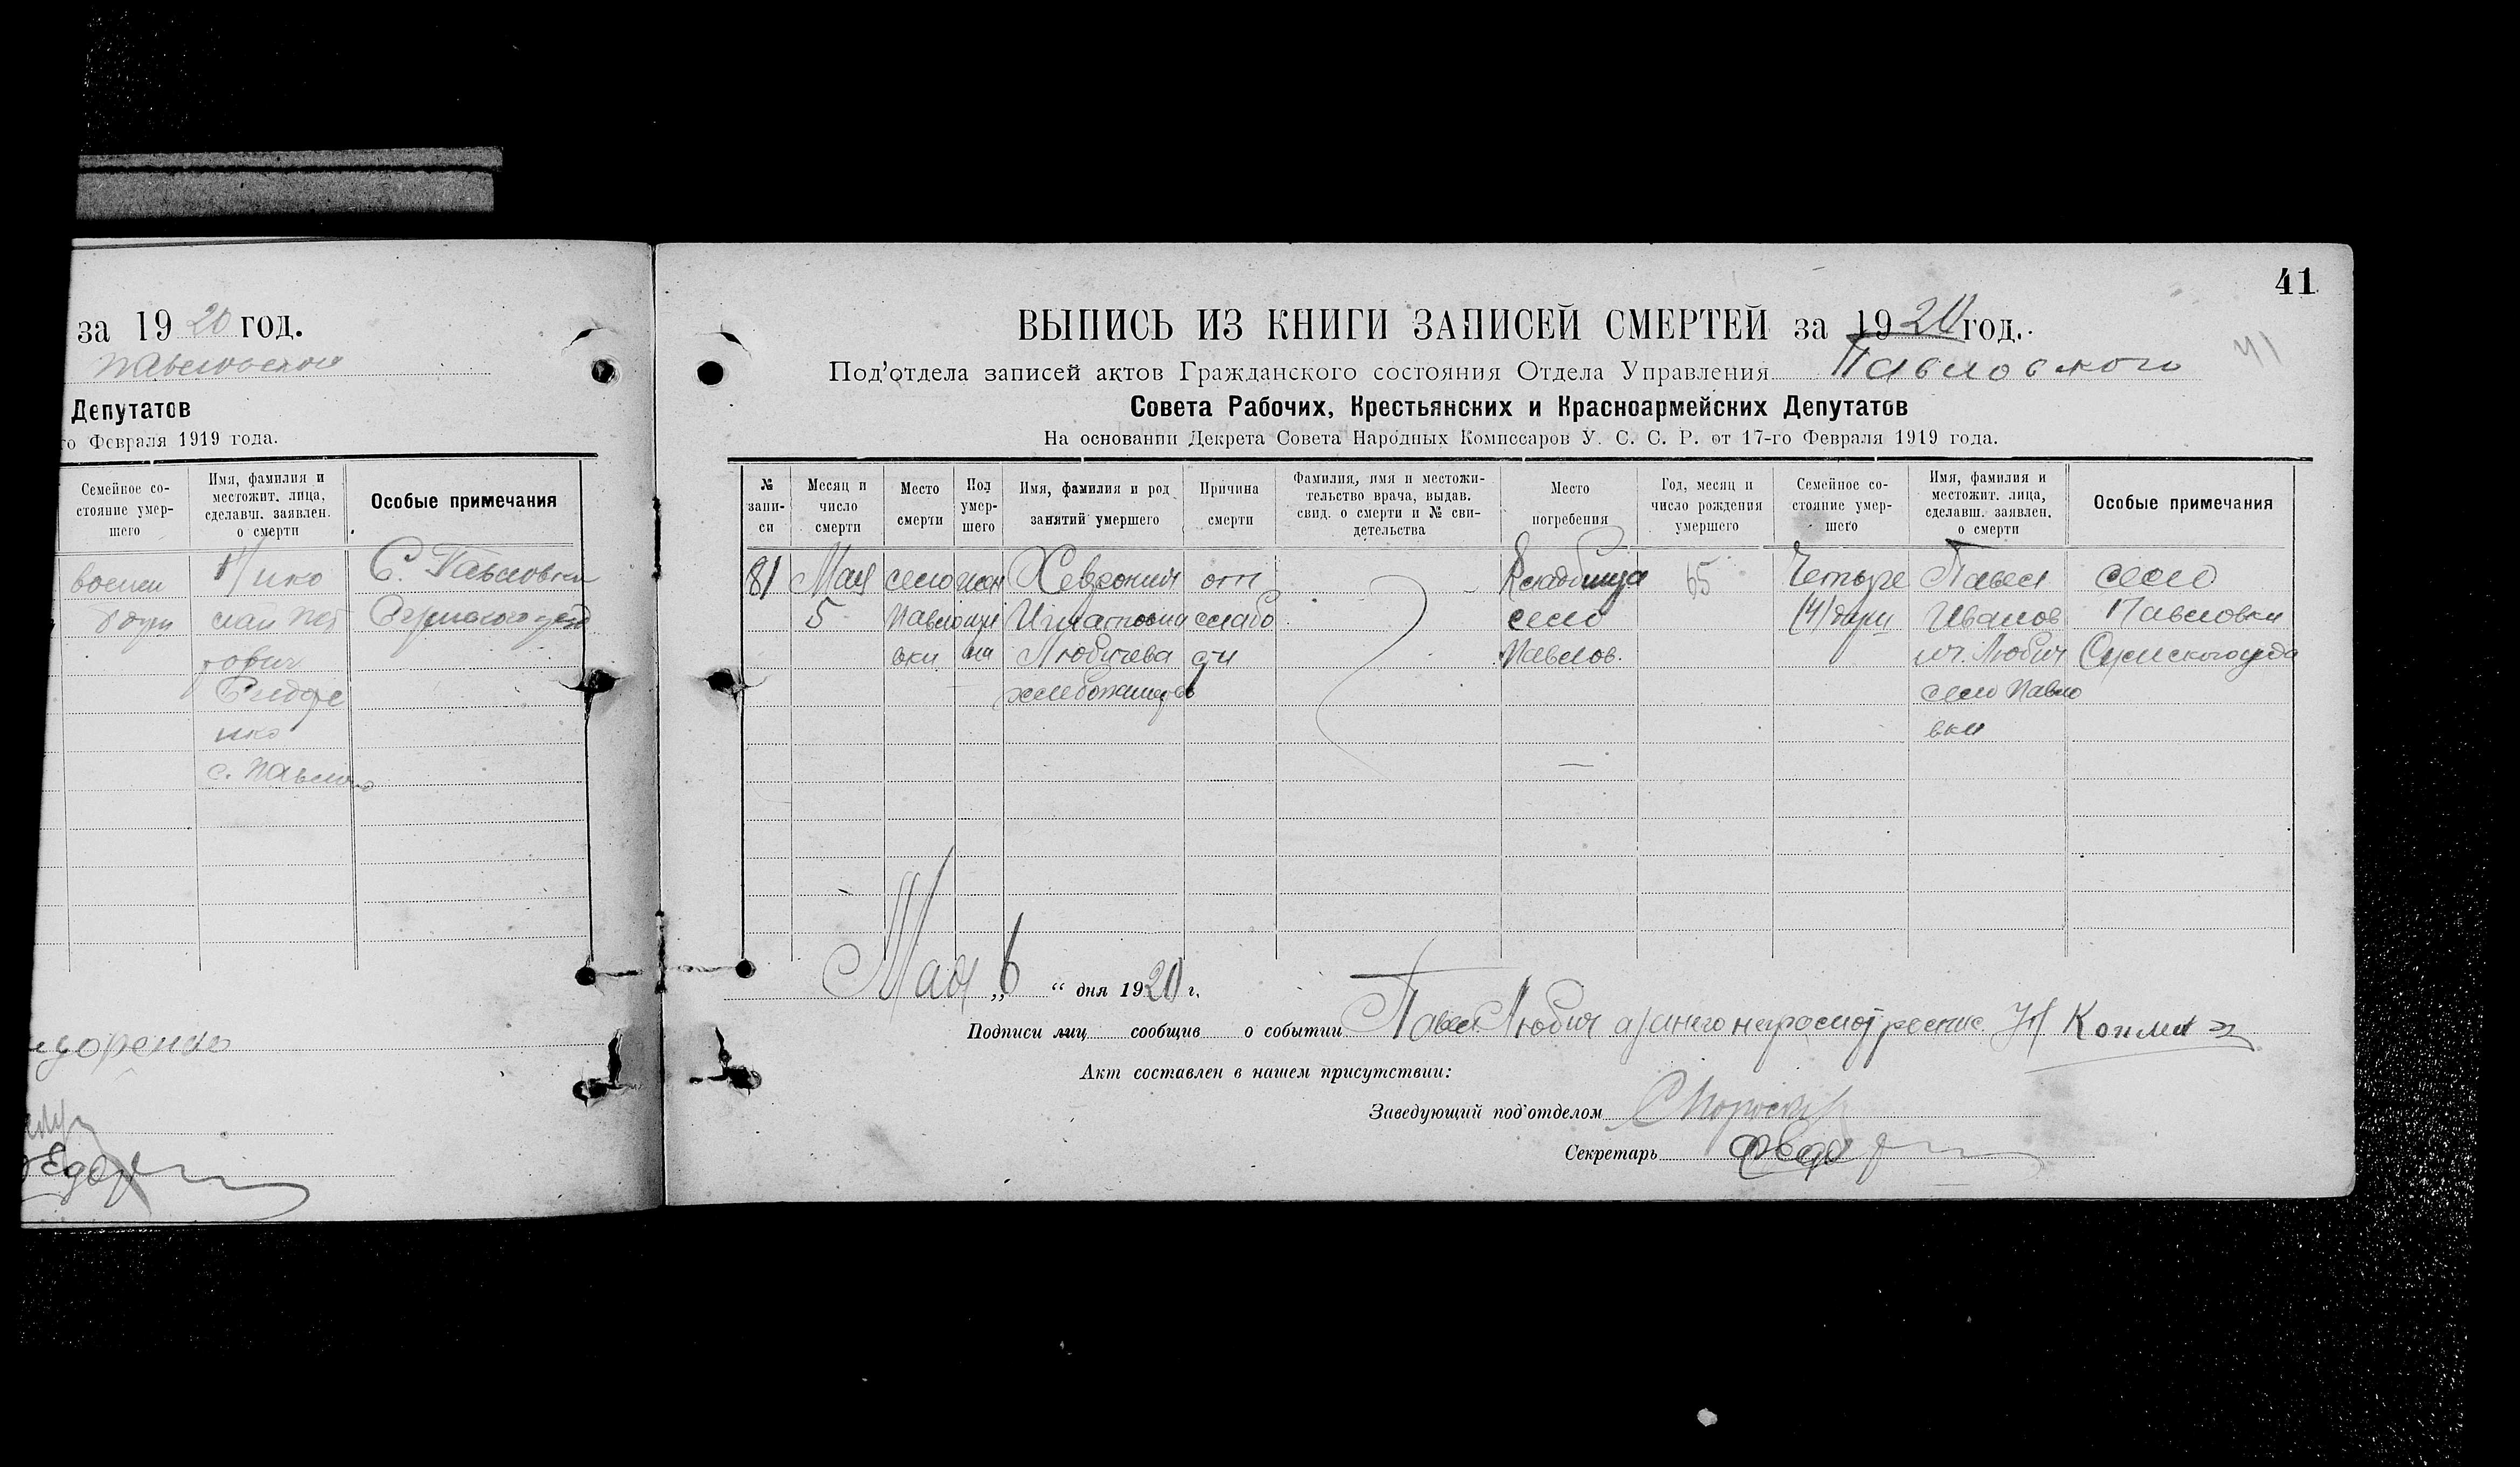 за 1920 год.
Павловской
Депутатов
го Февраля 1919 года.
Семейное со-
стояние умер-
шего
Имя, фамилия и
местожит. лица,
сделавш. заявлен.
о смерти
Особые примечания
восем
душ
Нико
лай Пет
рович
Сидоре
нко
с. Павлов
С. Павловки
Сумского уезд
41
ВЫПИСЬ ИЗ КНИГИ ЗАПИСЕЙ СМЕРТЕЙ за 1920 год.
41
Под'отдела записей актов Гражданского состояния Отдела Управления Павловского
Совета Рабочих, Крестьянских и Красноармейских Депутатов
На основании Декрета Совета Народных Комиссаров У. С. С. Р. от 17-го Февраля 1919 года.
№
запи-
си
Месяц и
число
смерти
Место
смерти
Пол
умер-
шего
Имя, фамилия и род
занятий умершего
Причина
смерти
Фамилия, имя и местожи-
тельство врача, выдав.
свид. о смерти и № сви-
детельства
Место
погребения
Год, месяц и
число рождения
умершего
Семейное со-
стояние умер-
шего
Имя, фамилия и
местожит. лица,
сделавш. заявлен.
о смерти
Особые примечания
81
Мая
5
село
Павло
вки
жен
щи
на
Хеврония
Игнатовна
Любичева
хлебопашец
от
слабо
сти
Кладбища
село
Павлов.
65
Четыре
(4) души
Павел
Иванов
ич. Любич
село Павло
вки
село
Павловки
Сумского уезда
Мая „ 6 “ дня 1920 г.
Подписи лиц сообщив о событии Павел Любич а за него неграмот
Акт составлен в нашем присутствии:
Заведующий под'отделом
Секретарь